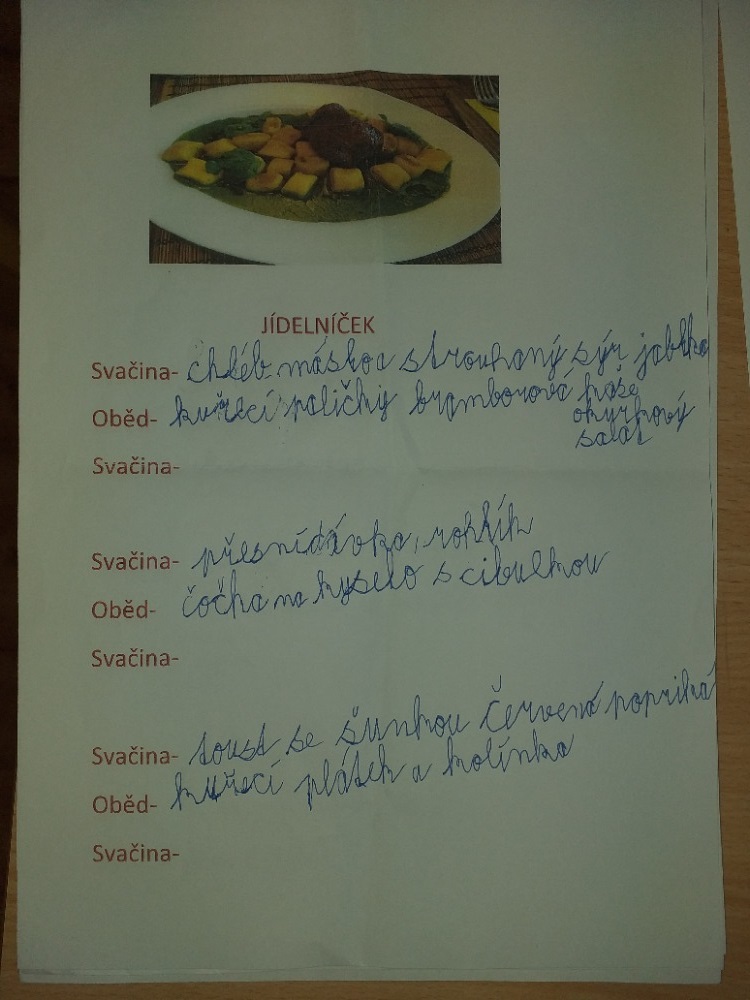 JÍDELNÍČEK
Svačina- chléb máslo a strouhaný sýr jablko
Oběd- kuřecí paličky bramborová kaše
okurkový
salát
Svačina-
Svačina- přesnídávka, rohlík
Oběd- čočka na kyselo s cibulkou
Svačina-
Svačina- toust se šunkou červená papriká
Oběd- kuřecí plátek a kolínka
Svačina-